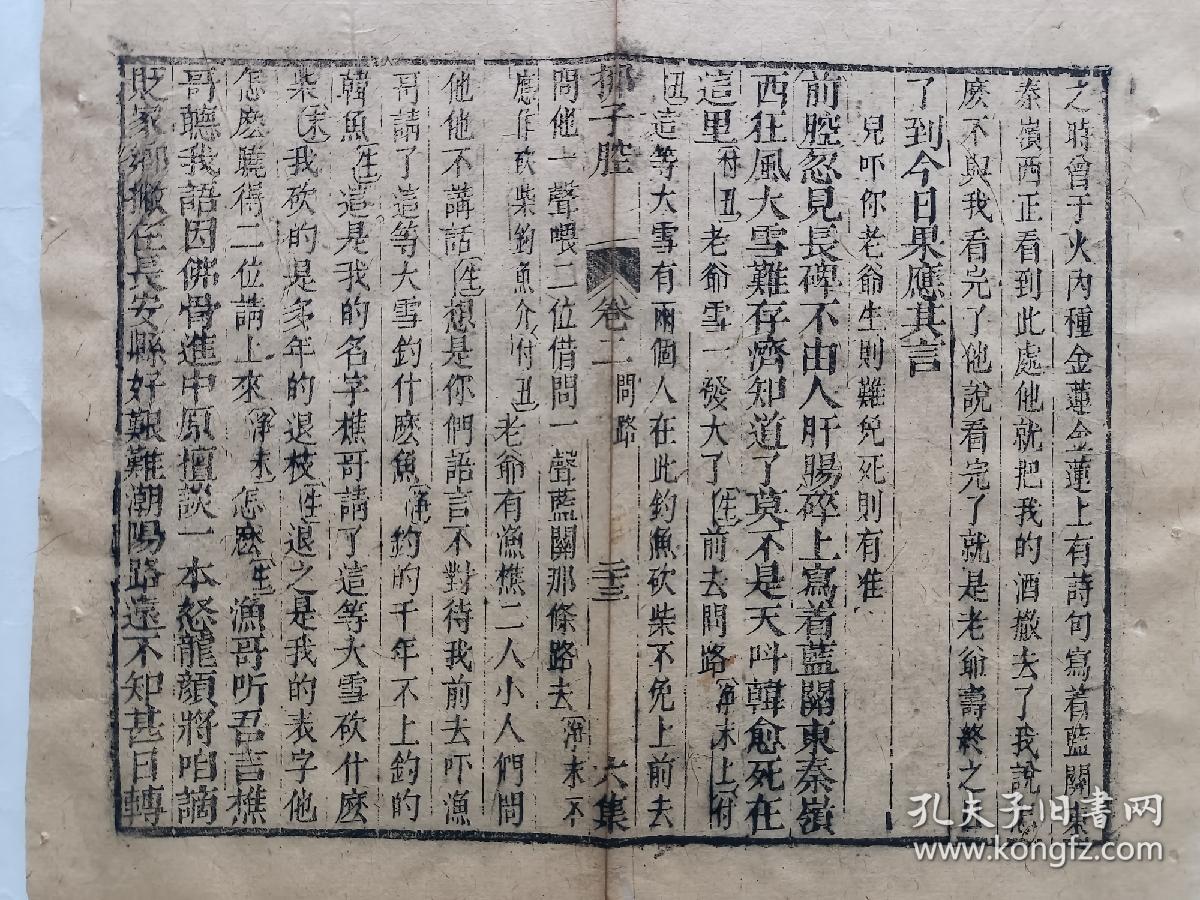 之時曾于火內種金蓮金蓮上有詩句寫着藍關東
秦嶺西正看到此處他就把我的酒撤去了我說
麽不與我看完了他說看完了就是老爺壽終之
兒吓你老爺生則難免死則有准
了到今日果應其言
前腔忽見長碑不由人肝腸碎上寫着藍關東秦嶺
西狂風大雪難存濟知道了莫不是天呌韓愈死在
這里付丑老爺雪一發大了生前去問路淨末上付
丑這等大雪有兩個人在此釣魚砍柴不免上前去
梆子腔
卷二
問路
二十三
六集
問他一聲喂二位借問一聲藍關那條路去淨末不
應作砍柴釣魚介付丑老爺有漁樵二人小人們問
他他不講話生想是你們語言不對待我前去吓漁
哥請了這等大雪釣什麽魚淨釣的千年不上釣的
韓魚生這是我的名字樵哥請了這等大雪砍什麽
柴末我砍的是多年的退枝生退之是我的表字他
怎麽曉得二位請上來淨末怎麽生漁哥听吾言樵
哥聽我語因佛骨進中原擅談一本怒龍顏將咱謫
貶家鄉撇在長安縣好艱難潮陽路遠不知甚日轉
孔夫子旧书网
www.kongfz.com